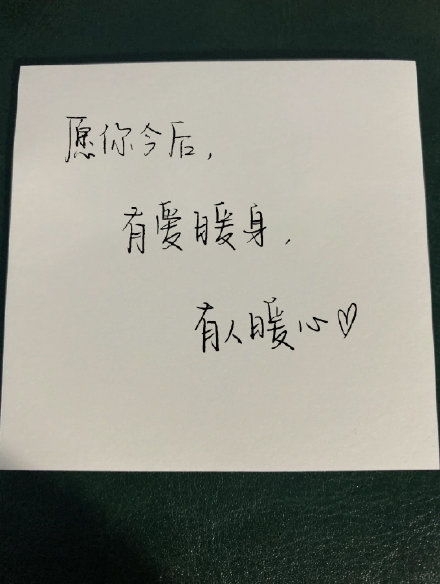 愿你今后，
有爱暖身，
有人暖心♡